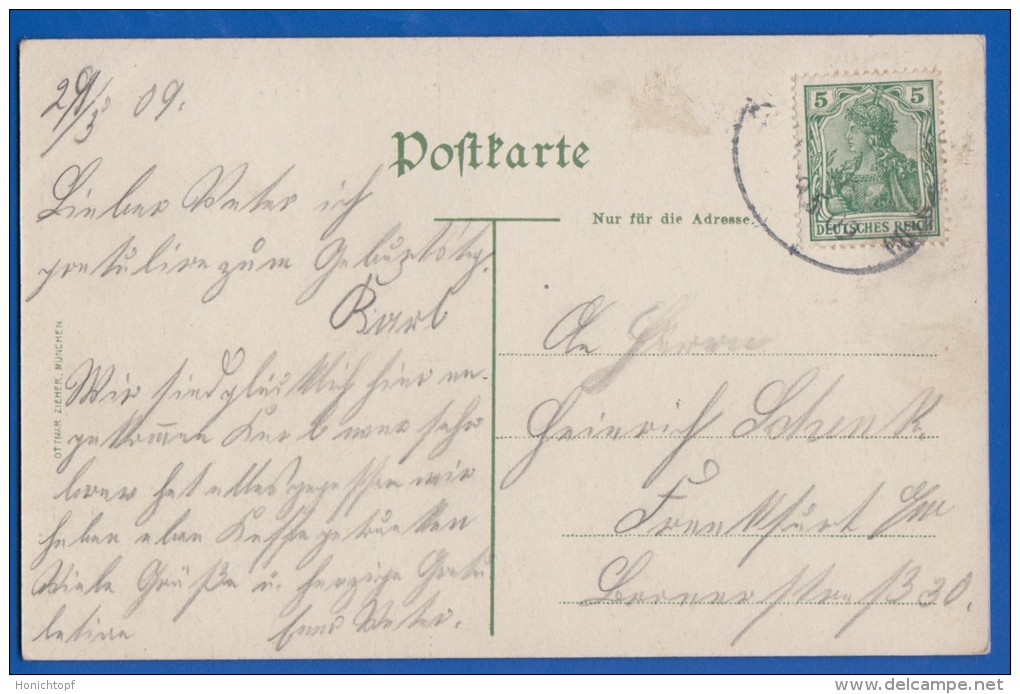 29/3 09.
Postkarte
Nur für die Adresse.
5 5
DEUTSCHES REICH
Lieber Vater ich
gratulire zum Geburtstag.
Karl
Wir sind glücklich hier an-
gekommen Karl war sehr
brav hat alles gegessen wir
haben eben Kaffe getrunken
Viele Grüße u. herzige Gratu
latione Vater.
OTTMAR ZIEHER, MÜNCHEN
An Herrn
Heinrich Schenk.
Frankfurt a/M
30.
Honichtopf
delcampe.net